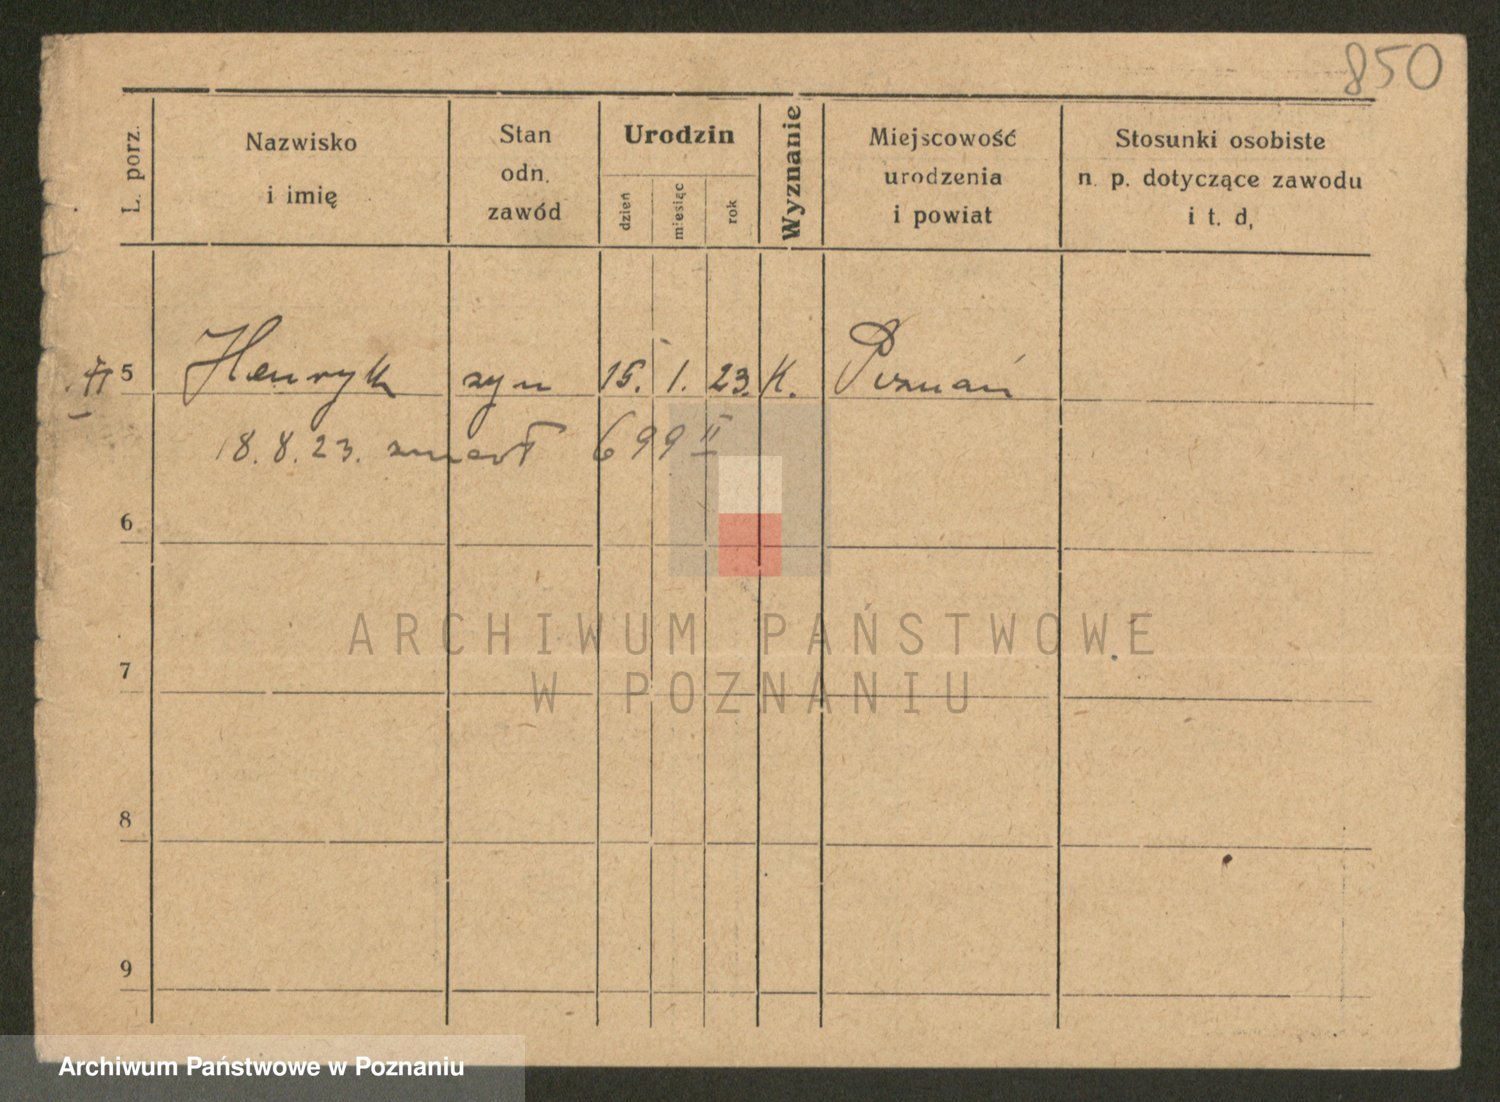 850
L. porz.
Nazwisko
i imię
Stan
odn.
zawód
Urodzin
dzień
miesiąc
rok
Wyznanie
Miejscowość
urodzenia
i powiat
Stosunki osobiste
n. p. dotyczące zawodu
i t. d,
5 Henryk syn 15. 1. 23. K. Poznań
18. 8. 23. zmarł 699 II
6
ARCHIWUM PAŃSTWOWE
W POZNANIU
7
8
9
Archiwum Państwowe w Poznaniu